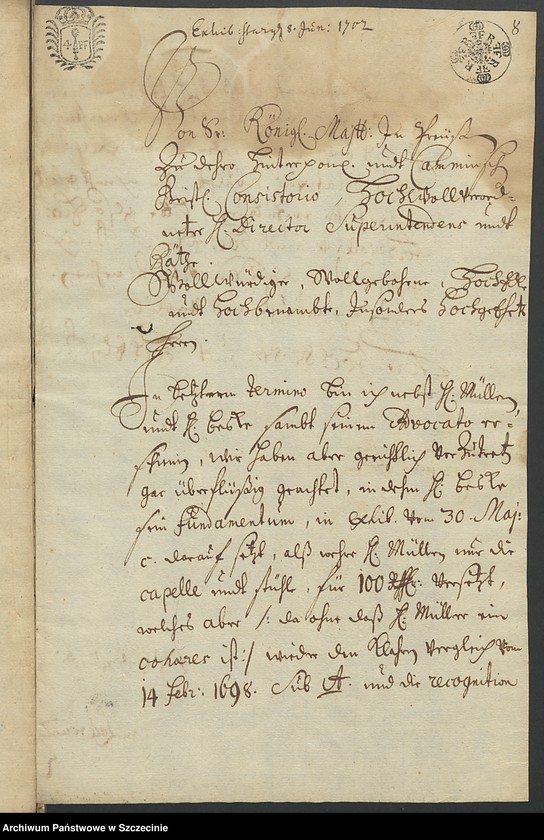 Exhib: Starg. 8. Jun: 1702
8
Von Sr: Königl. Maytt: In Preüß
Zu dehro Hinterpom. undt Camminsch
Geistl. Consistorio, Hochwollverord-
nete H. Director Superintendens undt
Rähte.
Wollwürdige, Wollgebohrne,
undt Hochbenambte, Insonders
Herrn.
In letzterm termino bin ich nebst H. Müllern
undt H. Beske sambt seinem Advocato er-
schienen, wir haben aber gerichtlich
gar überflüßig geachtet, in dehm H. Beske
sein fundamentum, in Exhib. vom 30. Maj:
c. darauf setzt, alß wehre H. Müllern nur die
capelle undt stühle, für 100 versetzt,
welches aber /: da ohne daß H. Müller ein
cohaeres ist :/ wieder den klahren Vergleich vom
14 Febr: 1698. sub A. und die recognition
Archiwum Państwowe w Szczecinie